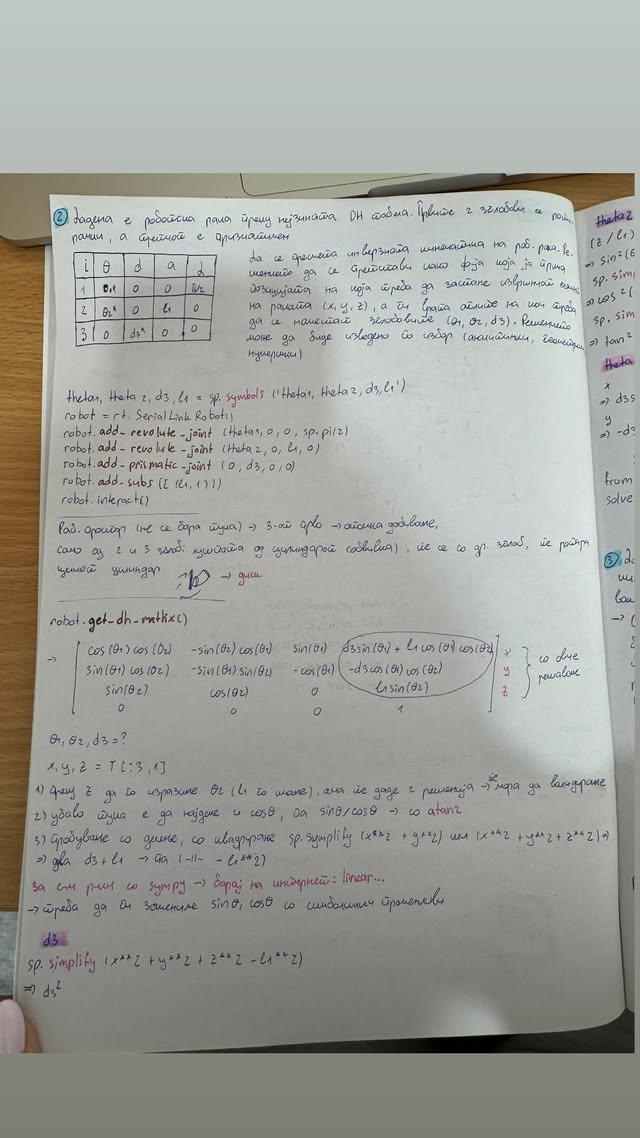 2 Дадена е роботска рака преку нејзината DH табела. Првите 2 зглобови се рота-
рачки, а третиот е призматичен
i θ d a α
1 θ1* 0 0 π/2
2 θ2* 0 l1 0
3 0 d3* 0 0
да се реши инверзната кинематика на роб. рака. Ре-
шението да се претстави како ф-ја која ја прима
позицијата на која треба да застане извршниот
на раката (x, y, z), а ги враќа аглите на кои треба
да се наместат зглобовите (θ1, θ2, d3). Решението
може да биде изведено по избор (аналитички, геометриски
нумерички)
theta1, theta2, d3, l1 = sp. symbols ('theta1, theta2, d3, l1')
robot = rt. SerialLinkRobot()
robot. add-revolute-joint (theta1, 0, 0, sp.pi/2)
robot. add-revolute-joint (theta2, 0, l1, 0)
robot. add-prismatic-joint (0, d3, 0, 0)
robot. add-subs ([(l1, 1)])
robot. interact()
Раб. простор (не се бара тука) → 3-от прво →
само од 2 и 3 зглоб: од цилиндарот, ќе се со др. зглоб, ќе ротира
целиот цилиндар → диск
robot. get-dh-matrix()
→ cos(θ1) cos(θ2) -sin(θ2) cos(θ1) sin(θ1) d3 sin(θ1) + l1 cos(θ1) cos(θ2) x
sin(θ1) cos(θ2) -sin(θ1) sin(θ2) -cos(θ1) -d3 cos(θ1) cos(θ2) y
sin(θ2) cos(θ2) 0 l1 sin(θ2) z
0 0 0 1
со овие
решаваме
θ1, θ2, d3 = ?
x, y, z = T[:3, 1]
1) преку z да го изразиме θ2 (l1 го знаеме), ама ќе даде 2 решенија → ќе мора да валидираме
2) убаво тука е да најдеме и cosθ, па sinθ/cosθ → со atan2
3) Пробуваме со делење, со квадрирање sp.symplify (x**2 + y**2) или (x**2 + y**2 + z**2) ⇒
⇒ два d3 + l1 → па (-11- - l1**2)
За с-м р-ки со sympy → барај на интернет: linear...
→ треба да ги замениме sinθ, cosθ со симболички променливи
d3
sp. simplify (x**2 + y**2 + z**2 - l1**2)
⇒ d3²
theta2
(z / l1)
⇒ sin²(θ
sp. sim
⇒ cos²(
sp. sim
⇒ tan²
theta
x
⇒ d3s
y
⇒ -d3
from
solve
3